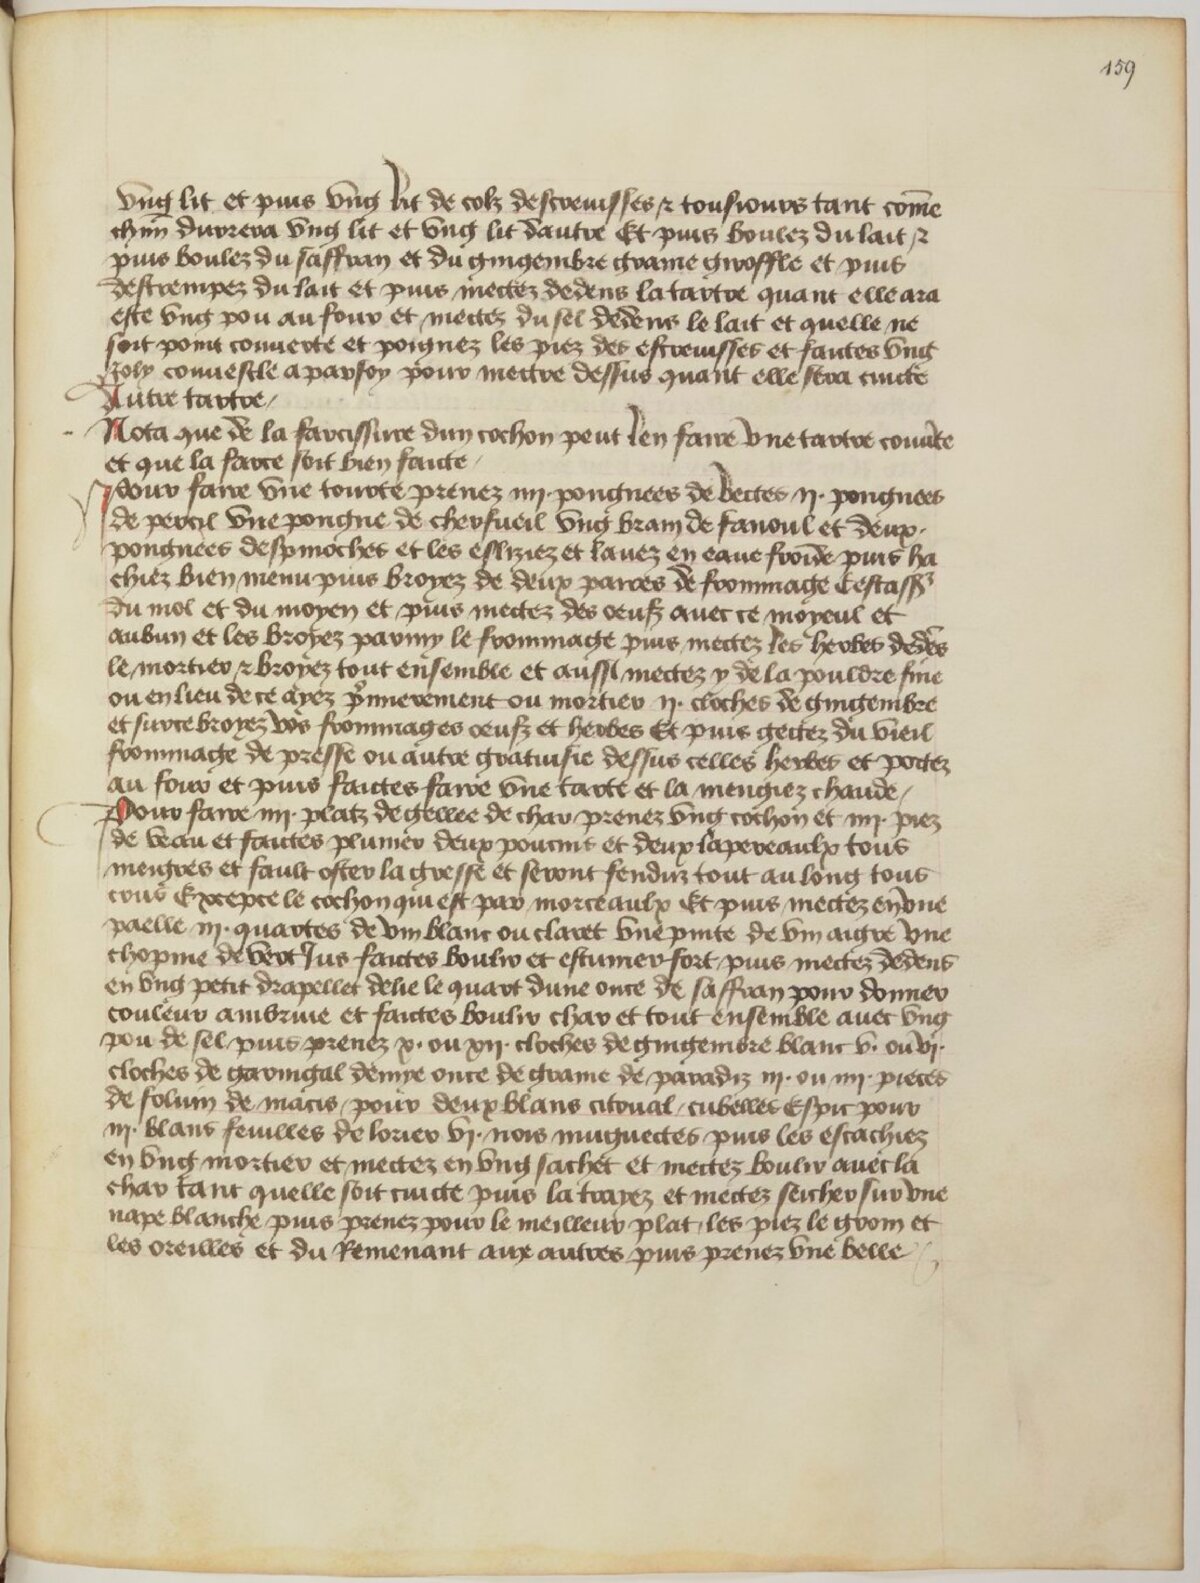 159
vng lit et puis vng lit de colz descreuisses ⁊ tousiours tant cōme
chūn durrera vng lit et vng lit dautre Et puis boulez du lait ⁊
puis boulez du saffran et du gingembre graine giroffle et puis
destrempez du lait et puis mectez dedens la tartre quant elle ara
este vng pou au four et mectez du sel dedens le lait et quelle ne
soit point couuerte et poignez les piez des escreuisses et faictes vng
Joly couuescle a par soy pour mectre dessus quant elle sera cuicte
Autre tartre /
Nota que de la farcissure dun cochon peut len faire vne tartre couu̾te
et que la farce soit bien faicte /
Pour faire vne tourte prenez iiij. pongnees de bectes ij. pongnees
de percil vne pongne de cherfueil vng brain de fanoul et deux.
pongnees despinoches et les esliziez et lauez en eaue froide puis ha
chiez bien menu puis broyez de deux paires de frommage Cestass̾
du mol et du moyen et puis mectez des oeufz auec ce moyeul et
aubun et les broyez parmy le frommage puis mectez les herbes dedēs
le mortier ⁊ broyez tout ensemble et aussi mectez y de la pouldre fine
ou en lieu de ce ayez p̾mierement ou mortier ij. cloches de gingembre
et sur ce broyez vos frommages oeufz et herbes Et puis gectez du vieil
frommage de presse ou autre gratuisie dessus celles herbes et portez
au four et puis faictes faire vne tarte et la mengiez chaude /
Pour faire iiij. platz de gellee de char prenez vng cochon et iiij. piez
de veau et faictes plumer deux poucins et deux lapereaulx tous
meigres et fault oster la gresse et seront fenduz tout au long tous
crus Excepte le cochon qui est par morceaulx Et puis mectez en vne
paelle iij. quartes de vin blanc ou claret vne pinte de vin aigre vne
chopine de vert Jus faictes boulir et escumer fort puis mectez dedens
en vng petit drapellet delie le quart dune once de saffran pour donner
couleur ambrine et faictes boulir char et tout ensemble auec vng
pou de sel puis prenez x. ou xij. cloches de gingembre blanc v. ou vj.
cloches de garingal demye once de graine de paradiz iij. ou iiij. pieces
de folium de macis / pour deux blans citoual / cubelles Espic pour
iij. blans feuilles de lorier vj. nois muguectes puis les escachiez
en vng mortier et mectez en vng sachet et mectez boulir auec la
char tant quelle soit cuicte puis la trayez et mectez seicher sur vne
nape blanche puis prenez pour le meilleur plat / les piez le groin et
les oreilles et du Remenant aux autres puis prenez vne belle